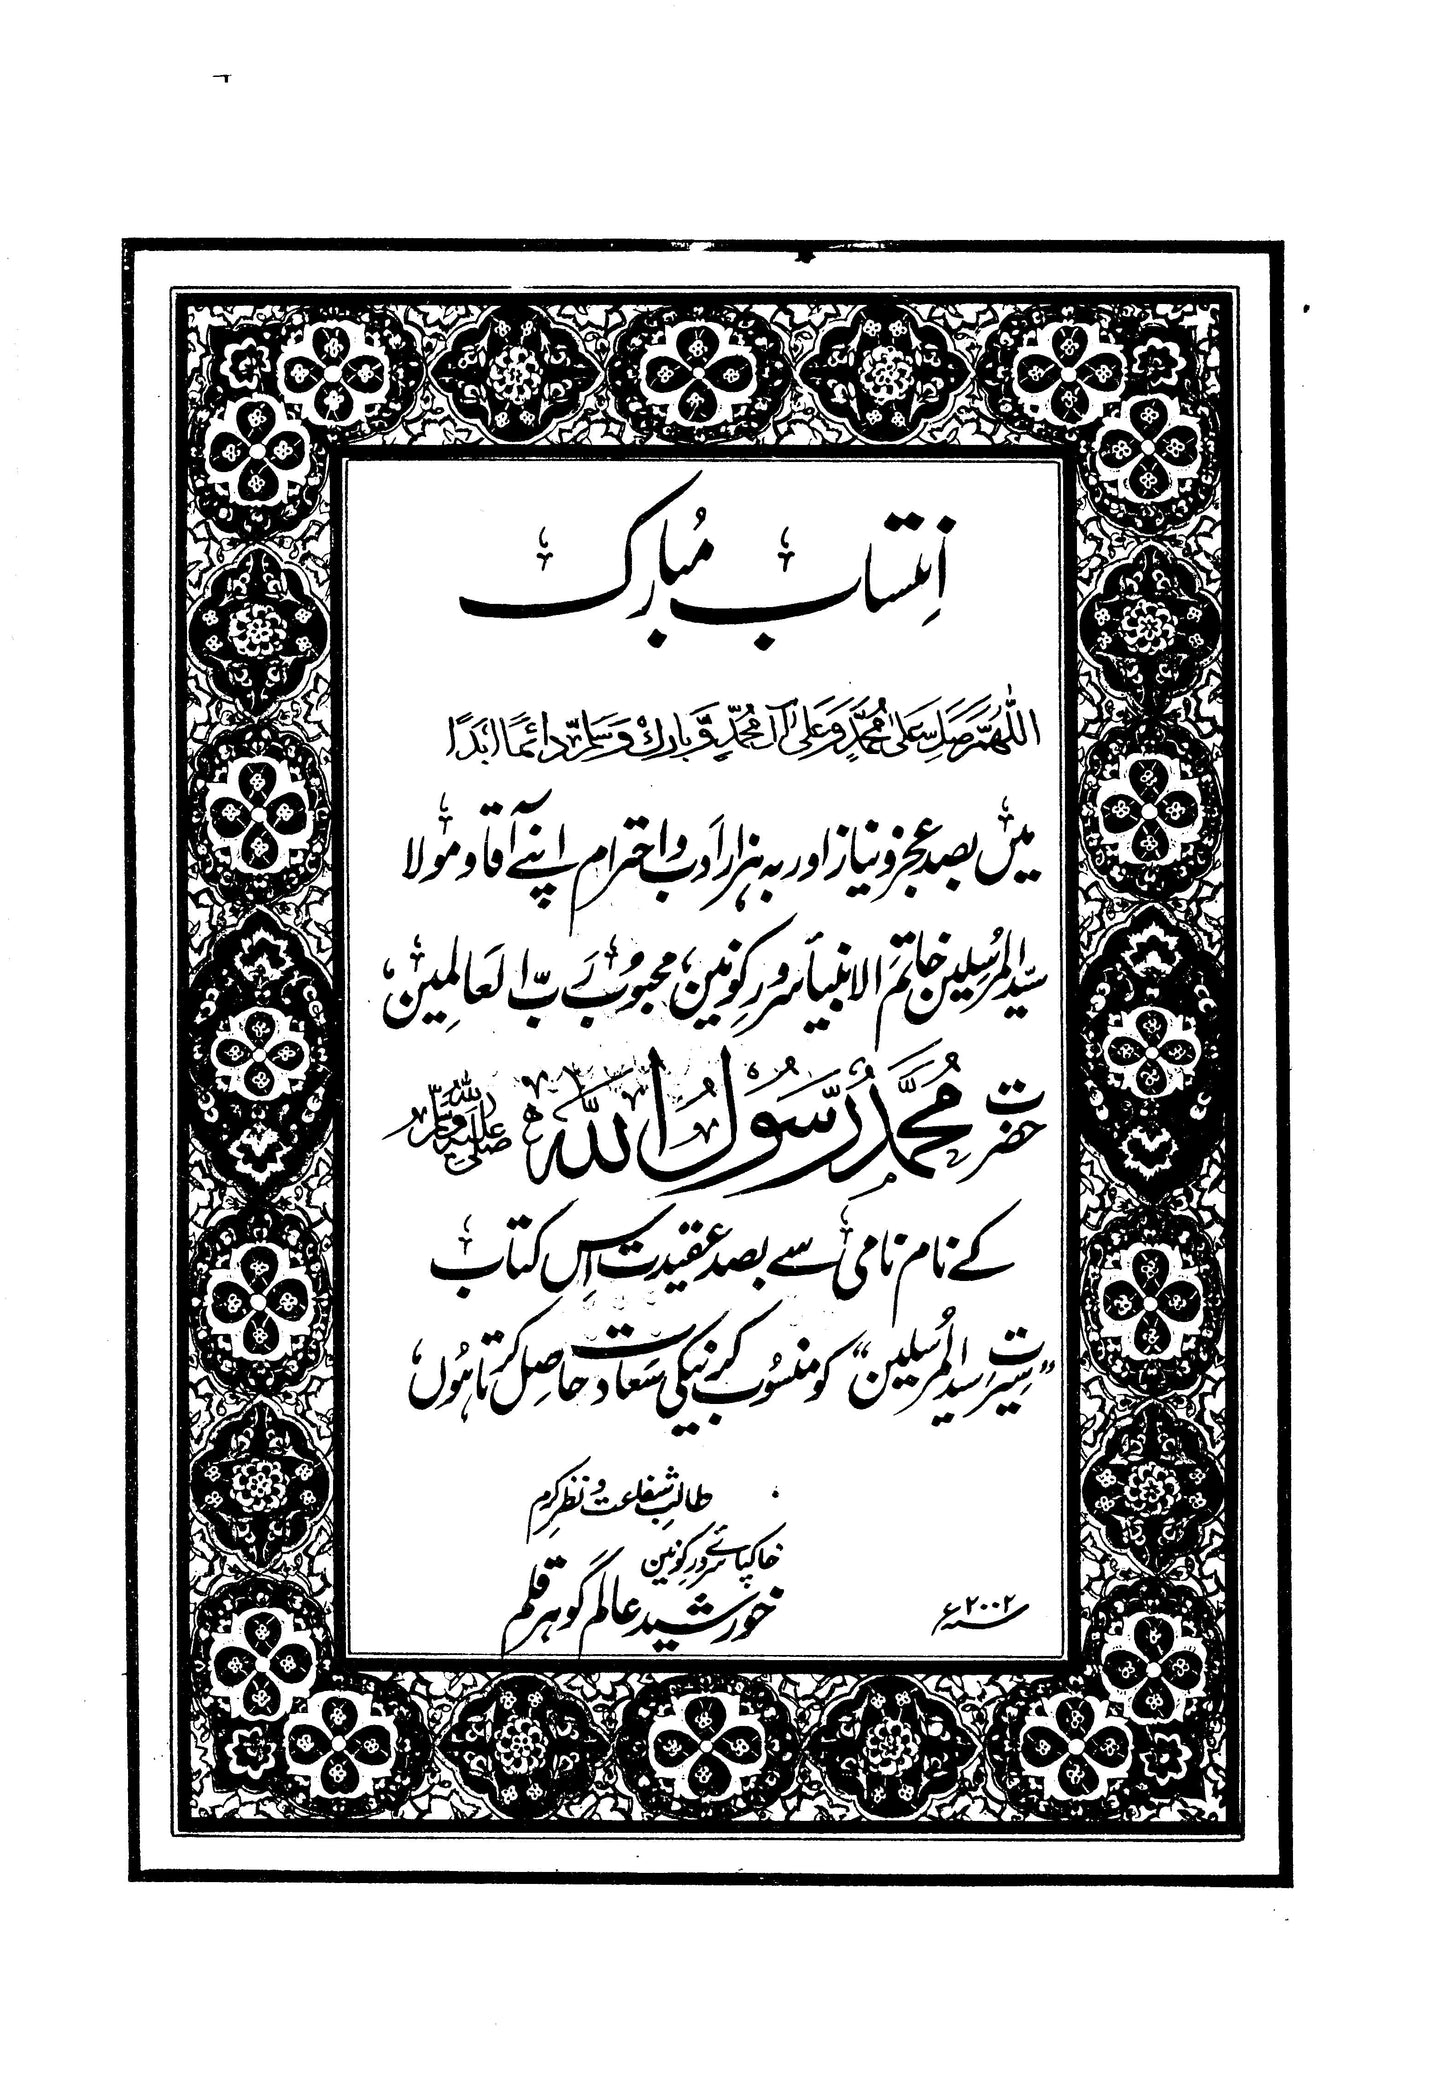 اِنتساب مُبارک
اللّٰهُمَّ صَلِّ عَلٰی مُحَمَّدٍ وَّعَلٰی اٰلِ مُحَمَّدٍ وَّبَارِكْ وَسَلِّمْ دَائِمًا اَبَدًا
میں بصد عجز و نیاز اور بہ ہزار اَدب و احترام اپنے آقا و مولا
سیّد المُرسلین خاتم الانبیأ سرورِ کونین، محبُوب رَبّ العَالمِین،
حضرت مُحَمَّدُ رَّسُوْلُ اللّٰه صلی اللہ علیہ وسلم
کے نام نامی سے بصد عقیدت اِس کتاب
”سیرتِ سیّد المُرسلین“ کو منسُوب کر نیکی سَعادت حاصل کرتا ہُوں،
طالبِ شفاعت و نظرِ کرم
خاکپائے سرورِ کونین
خورشید عالم گوہر قلم
۲۰۰۲ء